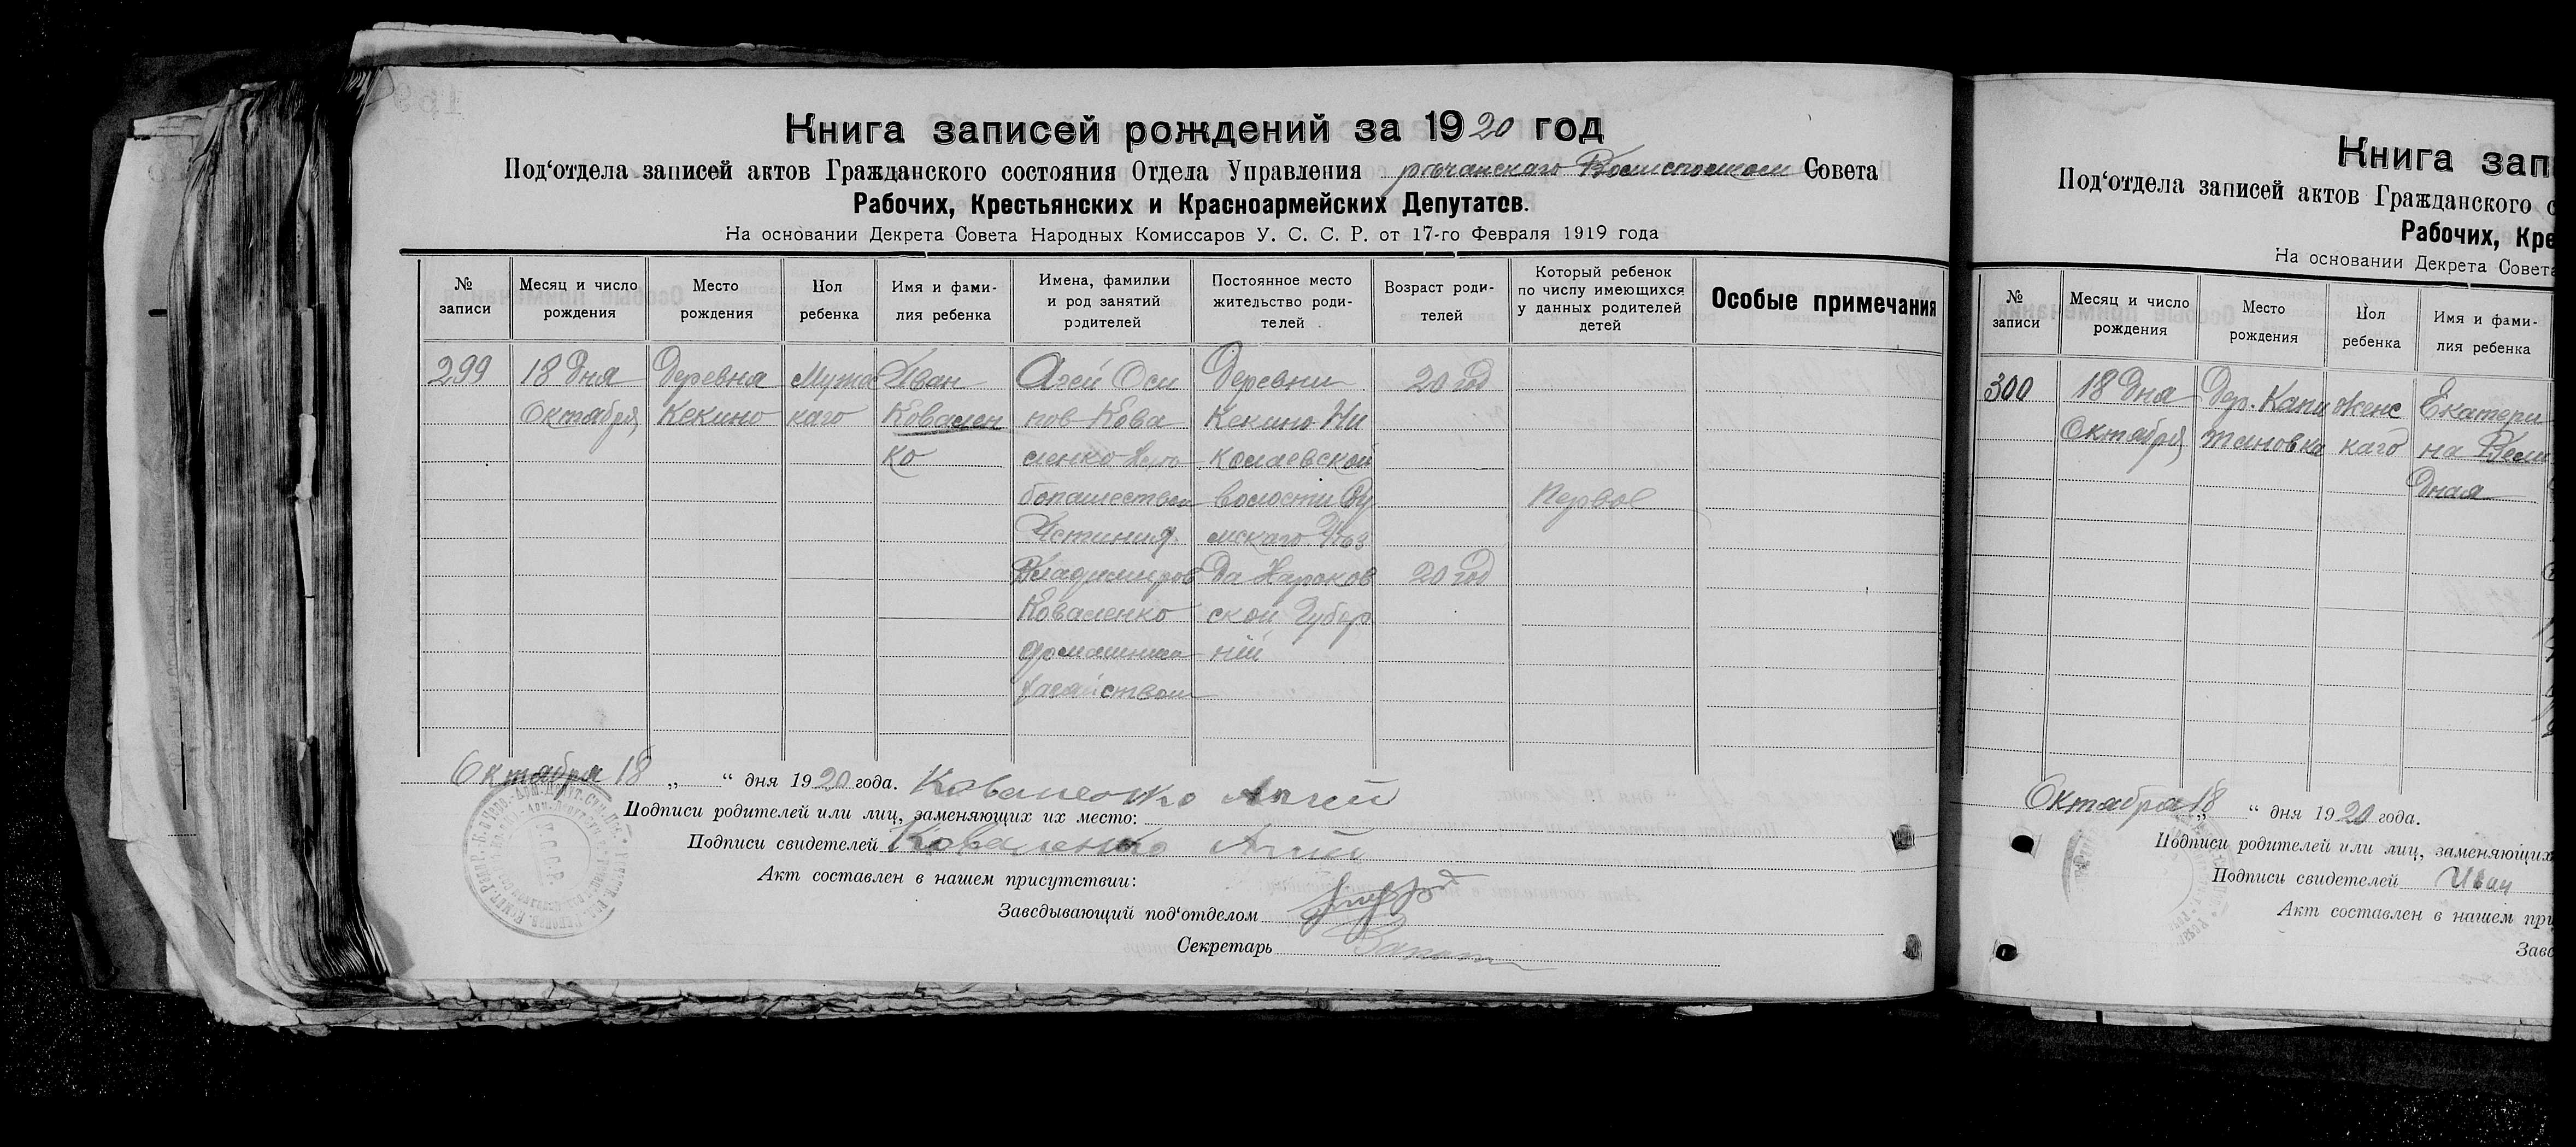 Книга записей рождений за 1920 год
Под‘отдела записей актов Гражданского состояния Отдела Управления Совета
Рабочих, Крестьянских и Красноармейских Депутатов.
На основании Декрета Совета Народных Комиссаров У. С. С. Р. от 17-го Февраля 1919 года
№ записи
Месяц и число рождения
Место рождения
Пол ребенка
Имя и фами-
лия ребенка
Имена, фамилии
и род занятий
родителей
Постоянное место
жительство роди-
телей
Возраст роди-
телей
Который ребенок
по числу имеющихся
у данных родителей
детей
Особые примечания
299
18 дня
Октября
Деревня
Кекино
Мужс
каго
Иван
Ковален
ко
Агей Оси
пов Кова
ленко
Устиния
Владимиров
Коваленко
домашним
Деревни
Кекино Ни
колаевской
волости Су
мскаго Уѣз
да Харьков
ской Губер
нии
20 год
20 год
Первое
Октября 18 „ “ дня 1920 года.
Подписи родителей или лиц, заменяющих их место: Коваленко Агей
Подписи свидетелей Коваленко Агей
Акт составлен в нашем присутствии:
Заведывающий под‘отделом
Секретарь
Книга зап
Под‘отдела записей актов Гражданского с
Рабочих, Кре
На основании Декрета Совета
№ записи
Месяц и число рождения
Место рождения
Пол ребенка
Имя и фами-
лия ребенка
300
18 дня
Октября
Дер. Капи
тановка
женс
каго
Екатери
на
дная
Октября 18 “ дня 1920 года.
Подписи родителей или лиц, заменяющих
Подписи свидетелей Иван
Акт составлен в нашем при
Заве